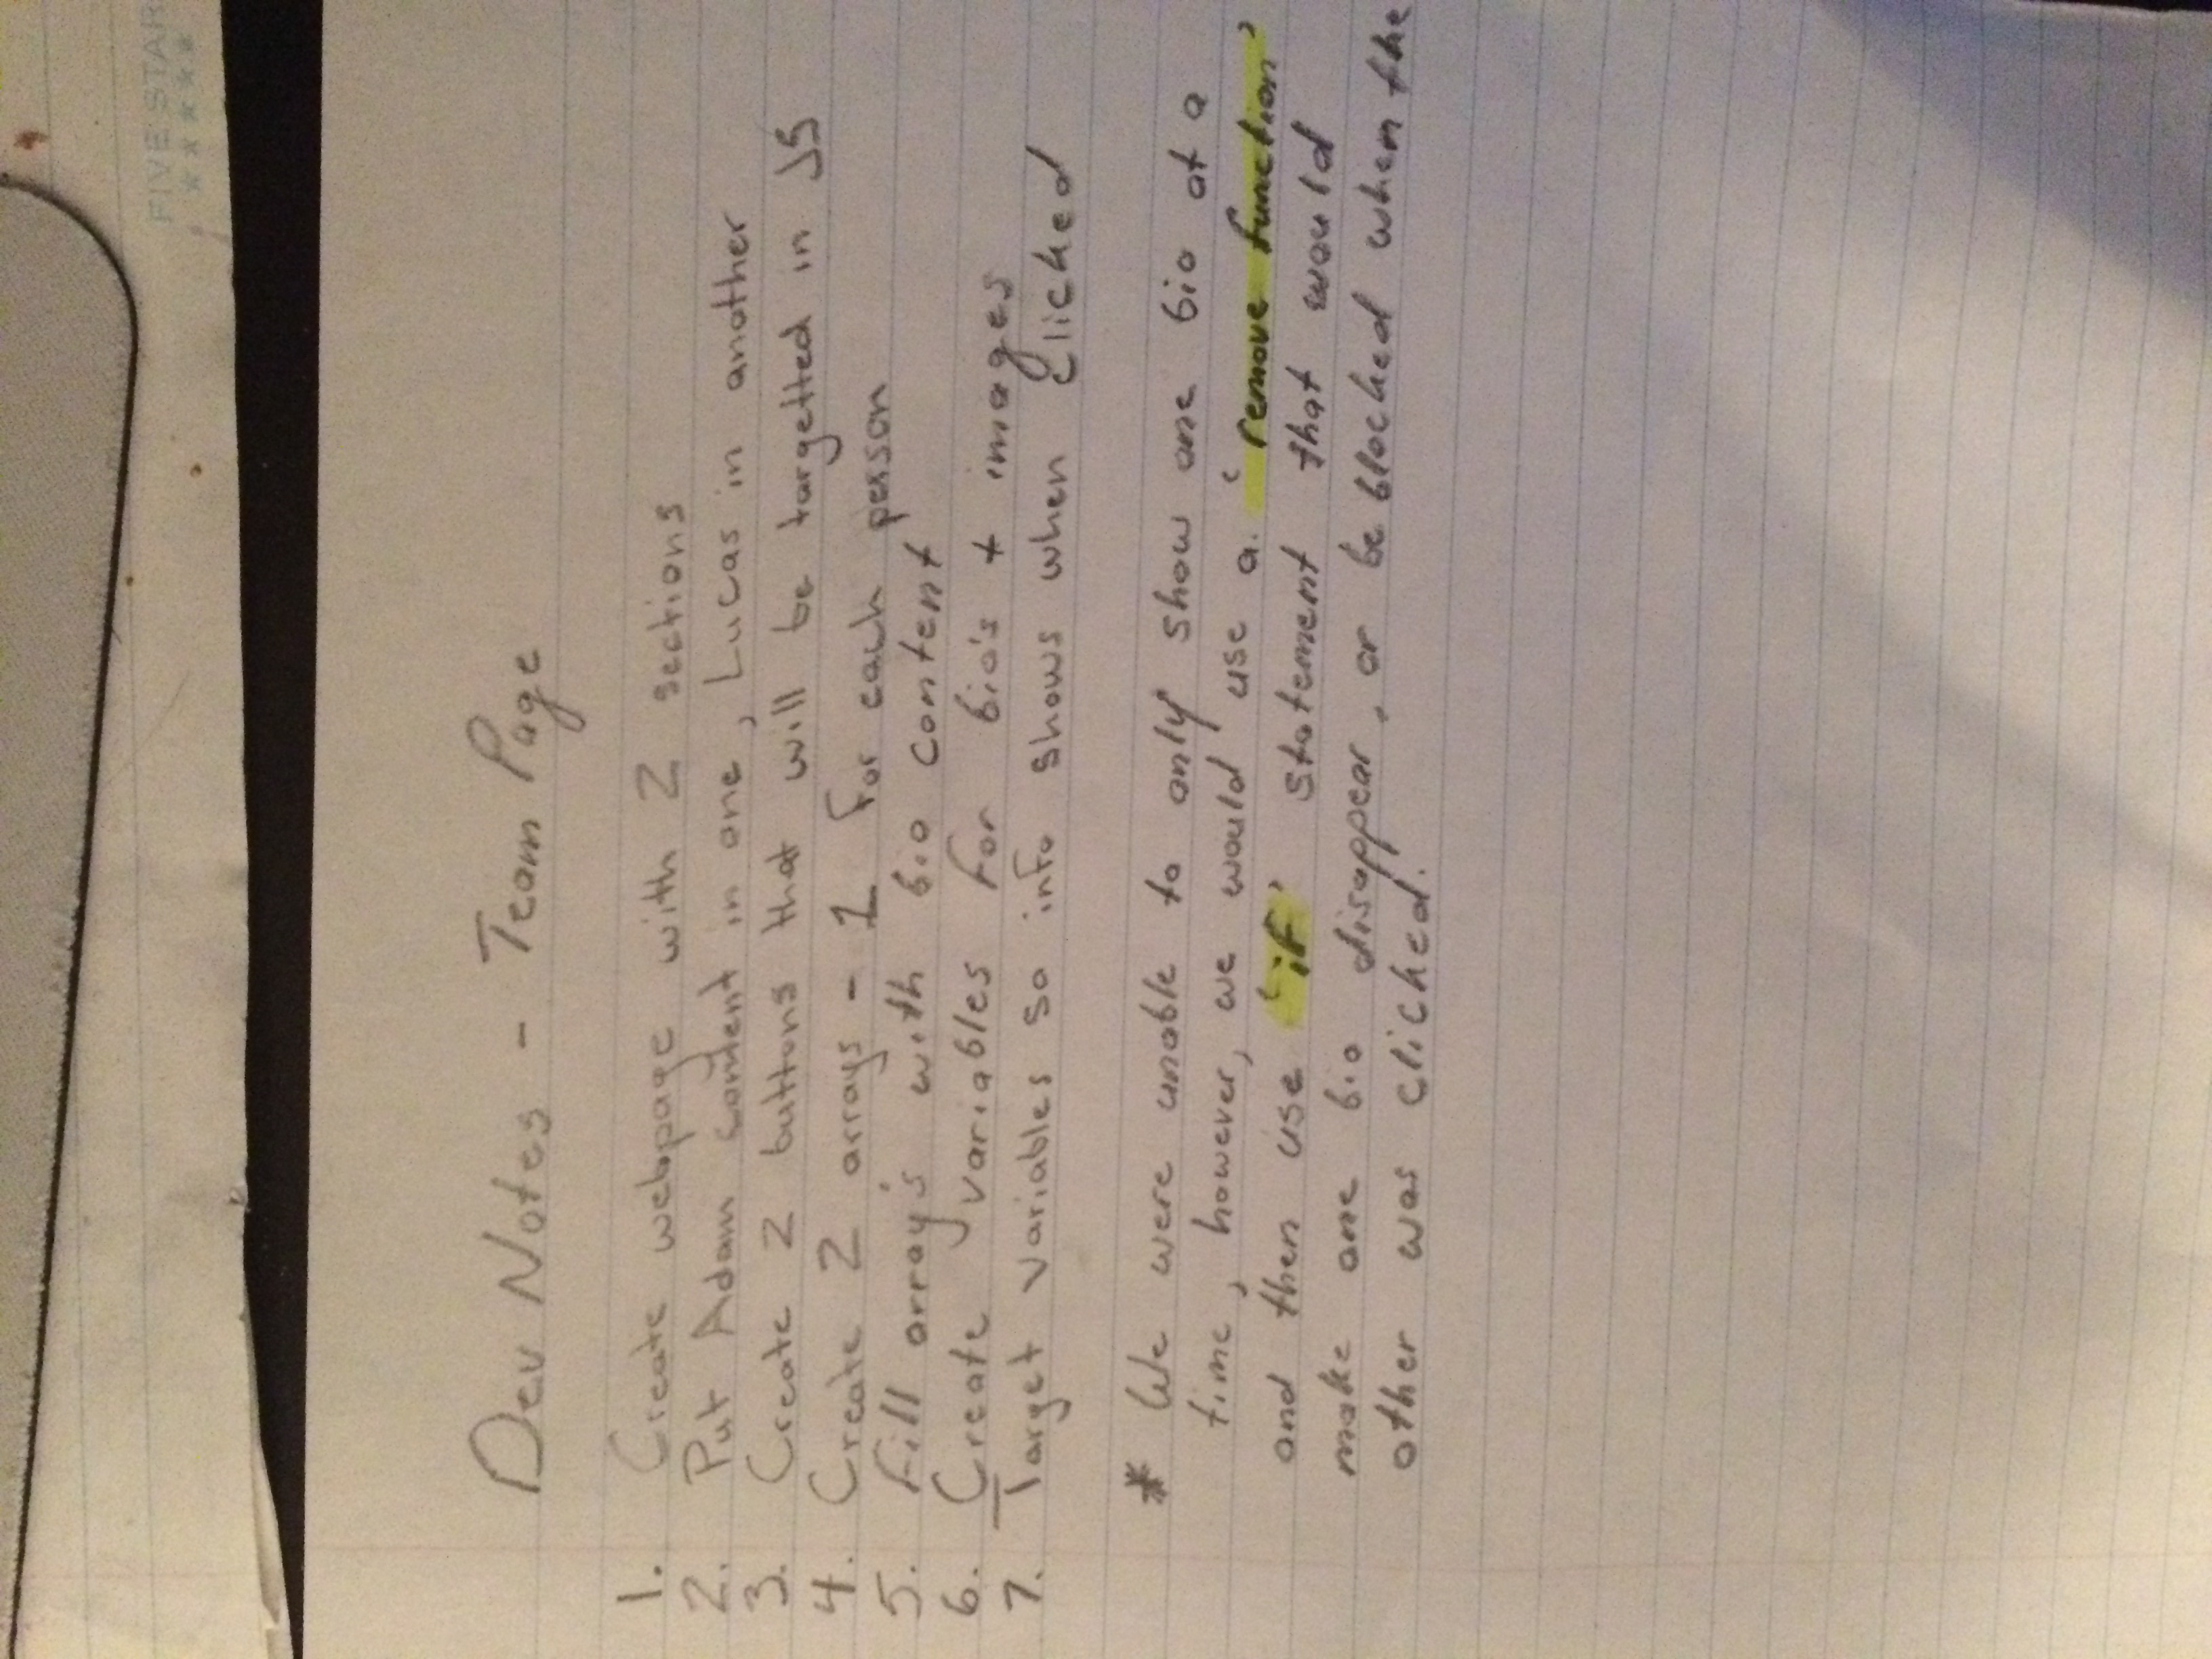 FIVE STAR
★★★★★
Dev Notes - Team Page
1. Create webpage with 2 sections
2. Put Adam content in one, Lucas in another
3. Create 2 buttons that will be targetted in JS
4. Create 2 arrays - 1 for each person
5. Fill array's with bio content
6. Create variables for bio's + images
7. Target variables so info shows when clicked
* We were unable to only show one bio at a
time, however, we would use a 'remove function'
and then use 'if' statement that would
make one bio disappear, or be blocked when the
other was clicked.